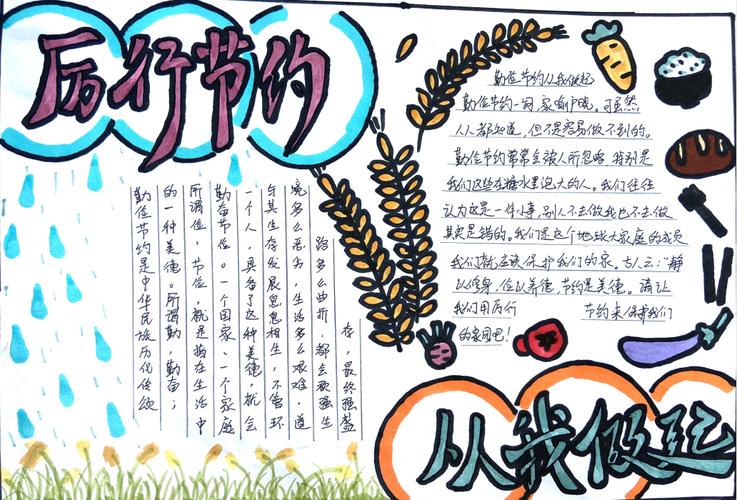 厉行节约
勤俭节约是中华民族历代传颂
的一种美德。所谓勤,勤奋;
所谓俭,节俭,就是指在生活中
勤奋节俭。一个国家、一个家庭
一个人,具备了这种美德,就会
与其生存发展息息相生,不管环
境多么恶劣,生活多么艰难,道
路多么曲折,都会被强生
存,最终强盛
勤俭节约从我做起
勤俭节约一词,家喻户晓。可虽然
人人都知道,但不是容易做不到的。
勤俭节约常常会被人所忽略,特别是
我们这些在糖水里泡大的人。我们往往
认为这是一件小事,别人不去做我也不去做
其实是错的。我们是这个地球大家庭的成员
我们就应该保护我们的家。古人云:“静
以修身,俭以养德,节约是美德。请让
我们用厉行 节约来保护我们
的家园吧!
从我做起